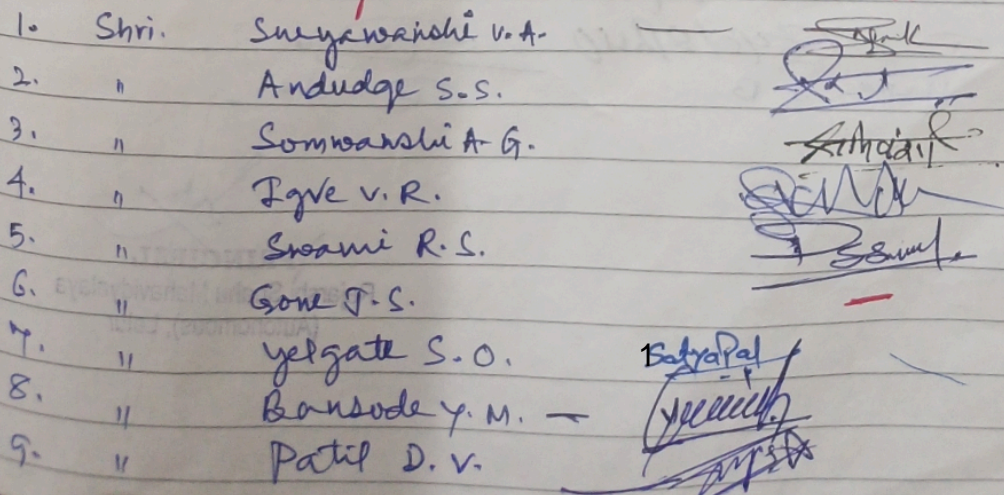 1. Shri. Sureyawanshi V.A. —
2. " Andudge S.S.
3. " Somwanshi A-G.
4. " Igve V.R.
5. " Swami R.S.
6. " Gone J.S. —
7. " Yelgate S.O. Satyapal
8. " Bansode Y.M. —
9. " Patil D.V.